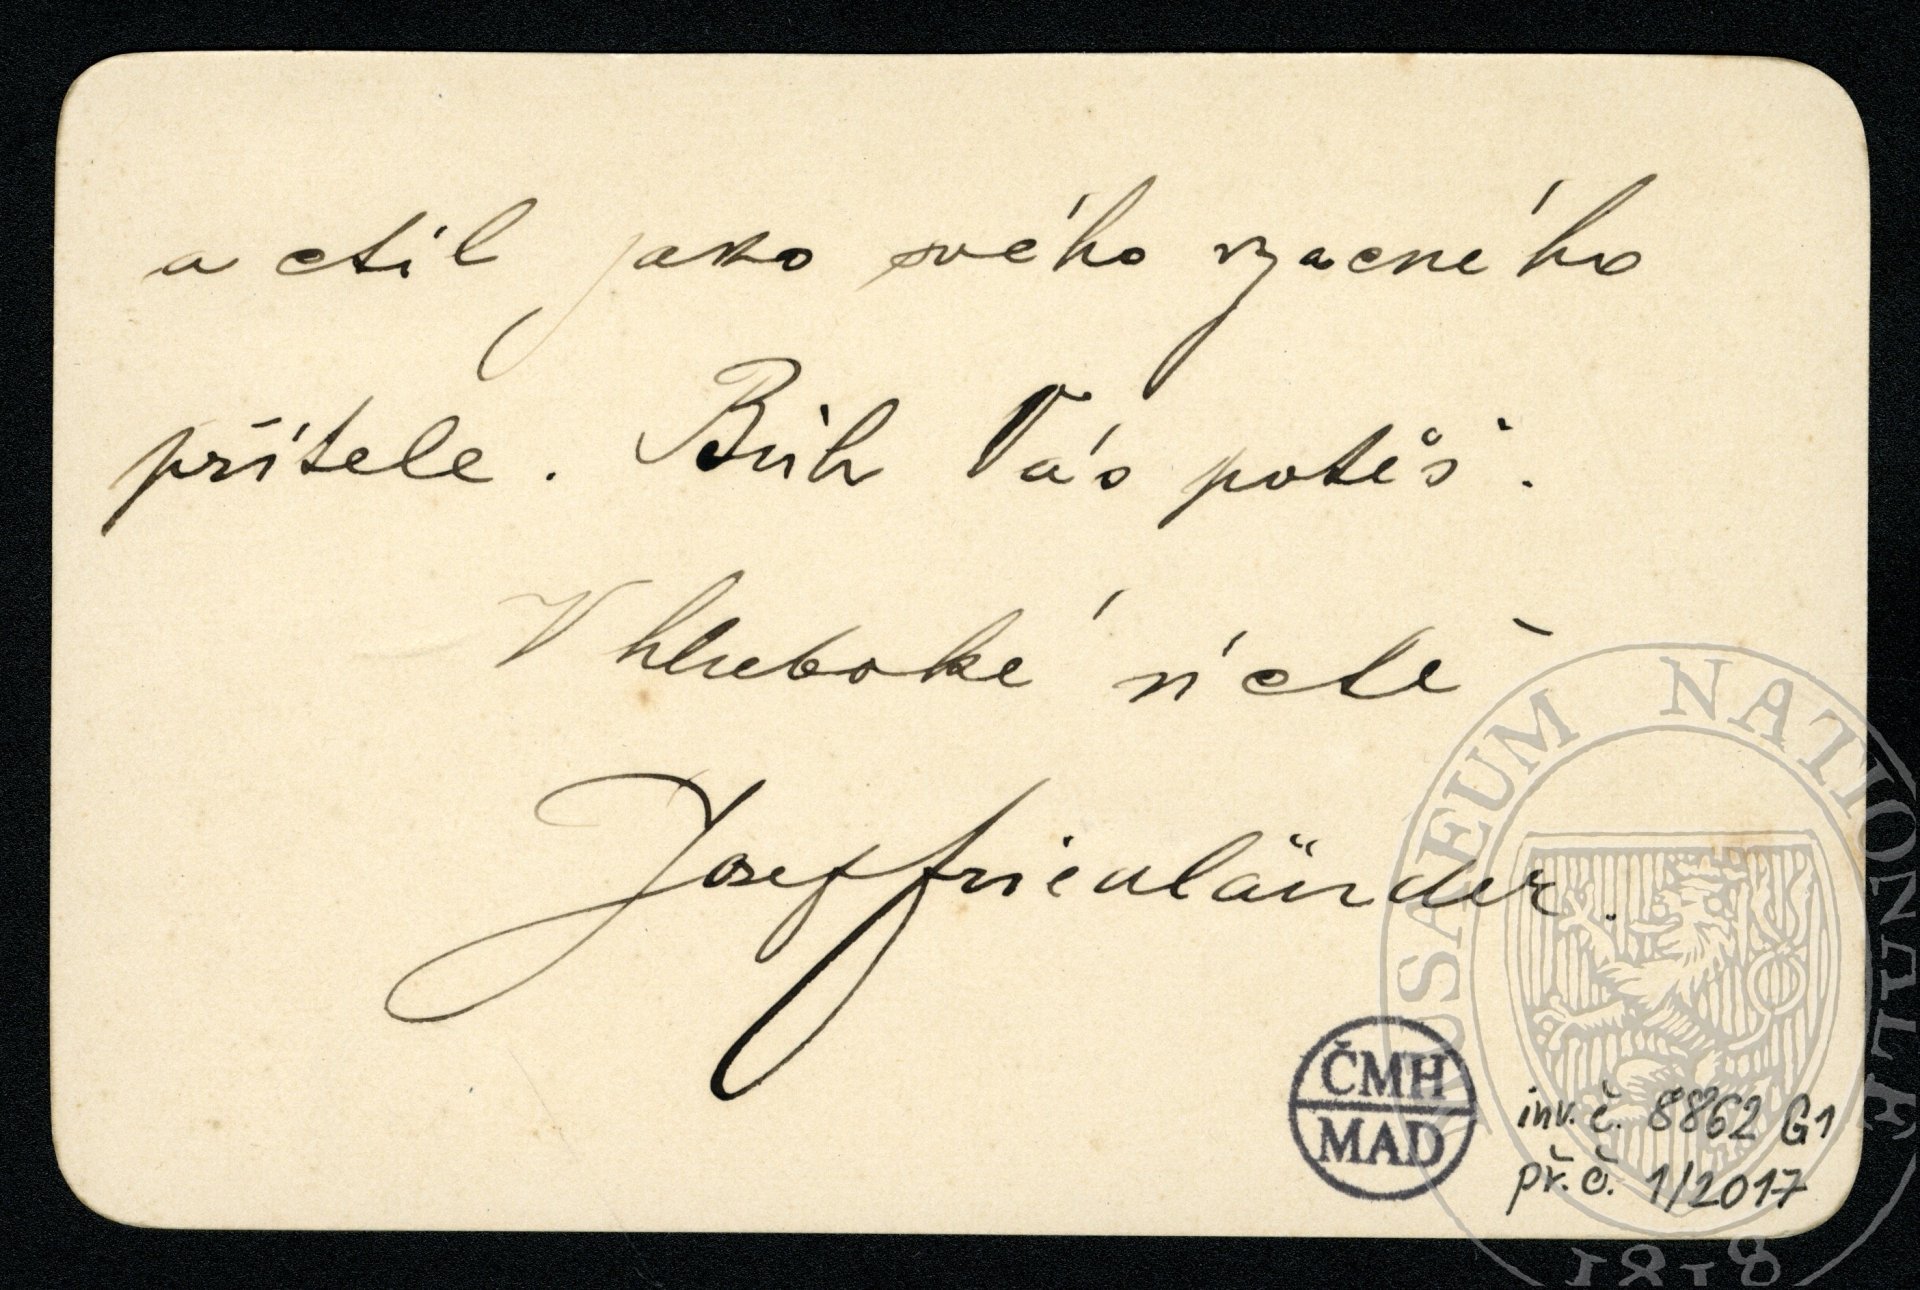 a ctil jako svého vzácného
přítele. Bůh Vás potěš.
V hluboké úctě
Josef Friedländer.
ČMH
MAD
inv. č. 8862 G1
př. č. 1/2017
MUSAEUM NATIONALE
1818